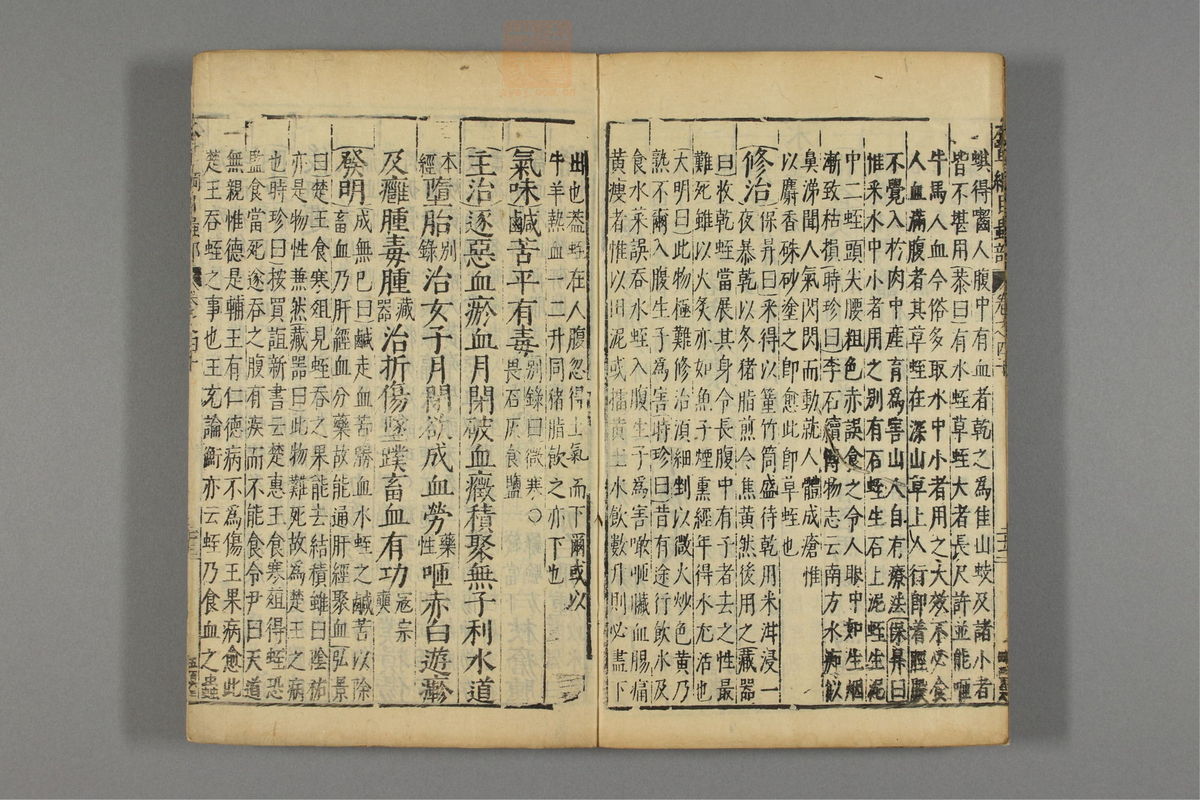 蜞得嚙人腹中有血者乾之為佳山蚑及諸小者
皆不堪用恭曰有水蛭草蛭大者長尺許並能咂
牛馬人血今俗多取水中小者用之大效不必食
人血滿腹者其草蛭在深山草上人行即着脛股
不覺入於肉中産育為害山人自有療法保昇曰
惟采水中小者用之別有石蛭生石上泥蛭生泥
中二蛭頭尖腰粗色赤誤食之令人眼中如生烟
漸致枯損時珍曰李石續博物志云南方水痴似
鼻涕聞人氣閃閃而動就人體成瘡惟
以麝香硃砂塗之即愈此即草蛭也
修治保昇曰采得以䈽竹筒盛待乾用米泔浸一
夜暴乾以冬猪脂煎令焦黄然後用之藏器
曰收乾蛭當展其身令長腹中有子者去之性最
難死雖以火炙亦如魚子煙熏經年得水尤活也
大明曰此物極難修治須細剉以微火炒色黄乃
熟不爾入腹生子為害時珍曰昔有途行飲水及
食水菜誤吞水蛭入腹生子為害噉咂臟血腸痛
黄瘦者惟以田泥或擂黄土水飲數升則必盡下
出也葢蛭在人腹忽得土氣而下爾或以
牛羊熱血一二升同猪脂飲之亦下也
氣味鹹苦平有毒別錄曰微寒○畏石灰食鹽
主治逐惡血瘀血月閉破血癥積聚無子利水道
本經墮胎別錄治女子月閉欲成血勞藥性咂赤白遊疹
及癰腫毒腫藏器治折傷墜撲畜血有功寇宗奭
發明成無已曰鹹走血苦勝血水蛭之鹹苦以除
畜血乃肝經血分藥故能通肝經聚血弘景
曰楚王食寒葅見蛭吞之果能去結積雖曰陰祐
亦是物性兼然藏器曰此物難死故為楚王之病
也時珍曰按賈誼新書云楚惠王食寒葅得蛭恐
監食當死遂吞之腹有疾而不能食令尹曰天道
無親惟德是輔王有仁德病不為傷王果病愈此
楚王吞蛭之事也王充論衡亦云蛭乃食血之蟲